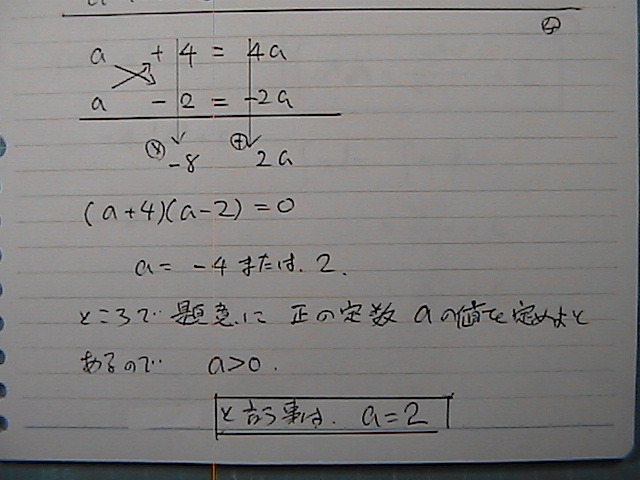 ④
a + 4 = 4a
a - 2 = -2a
⊗ -8 ⊕ 2a
(a+4)(a-2)=0
a= -4 または. 2.
ところで 題意に 正の定数 aの値を定めよと
あるので a>0.
と言う事は. a=2